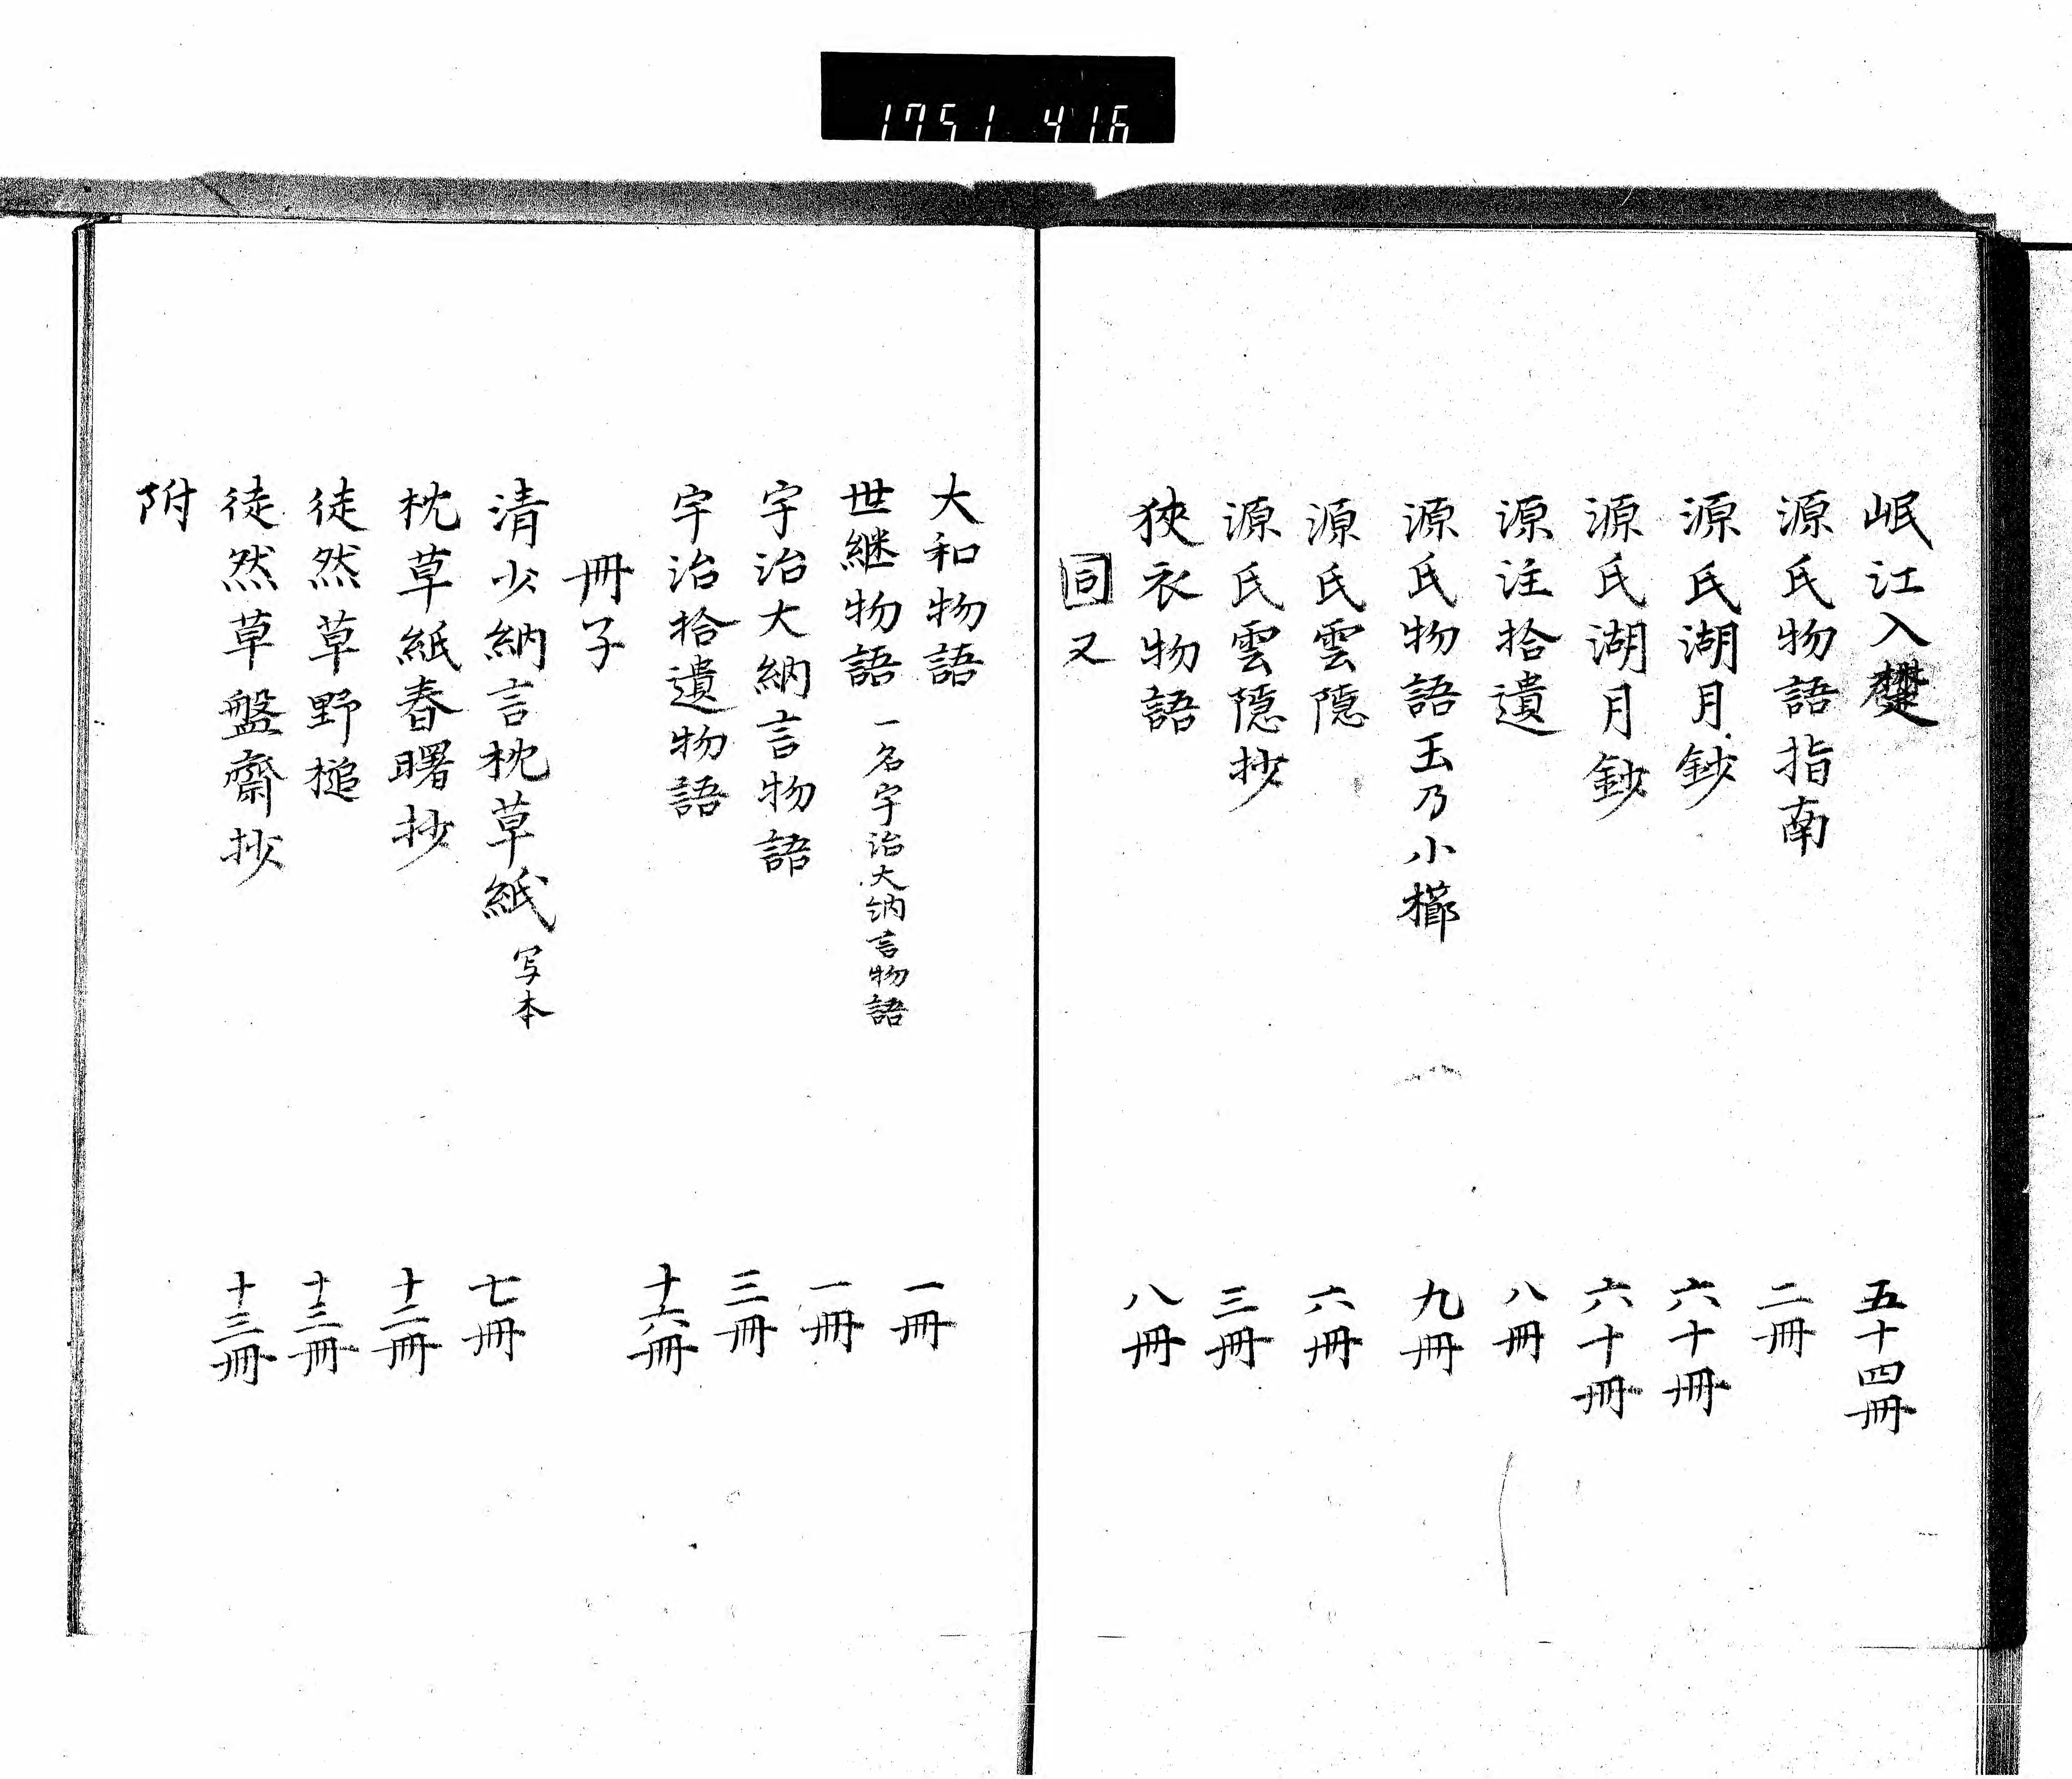 1751 416
岷江入楚 五十四冊
源氏物語指南 二冊
源氏湖月鈔 六十冊
源氏湖月鈔 六十冊
源注拾遺 八冊
源氏物語玉乃小櫛 九冊
源氏雲隠 六冊
源氏雲隠抄 三冊
狹衣物語 八冊
同又
大和物語 一冊
世継物語 一名宇治大納言物語 一冊
宇治大納言物語 三冊
宇治拾遺物語 十六冊
冊子
清少納言枕草紙 写本 七冊
枕草紙春曙抄 十二冊
徒然草野槌 十三冊
徒然草盤齋抄 十三冊
附